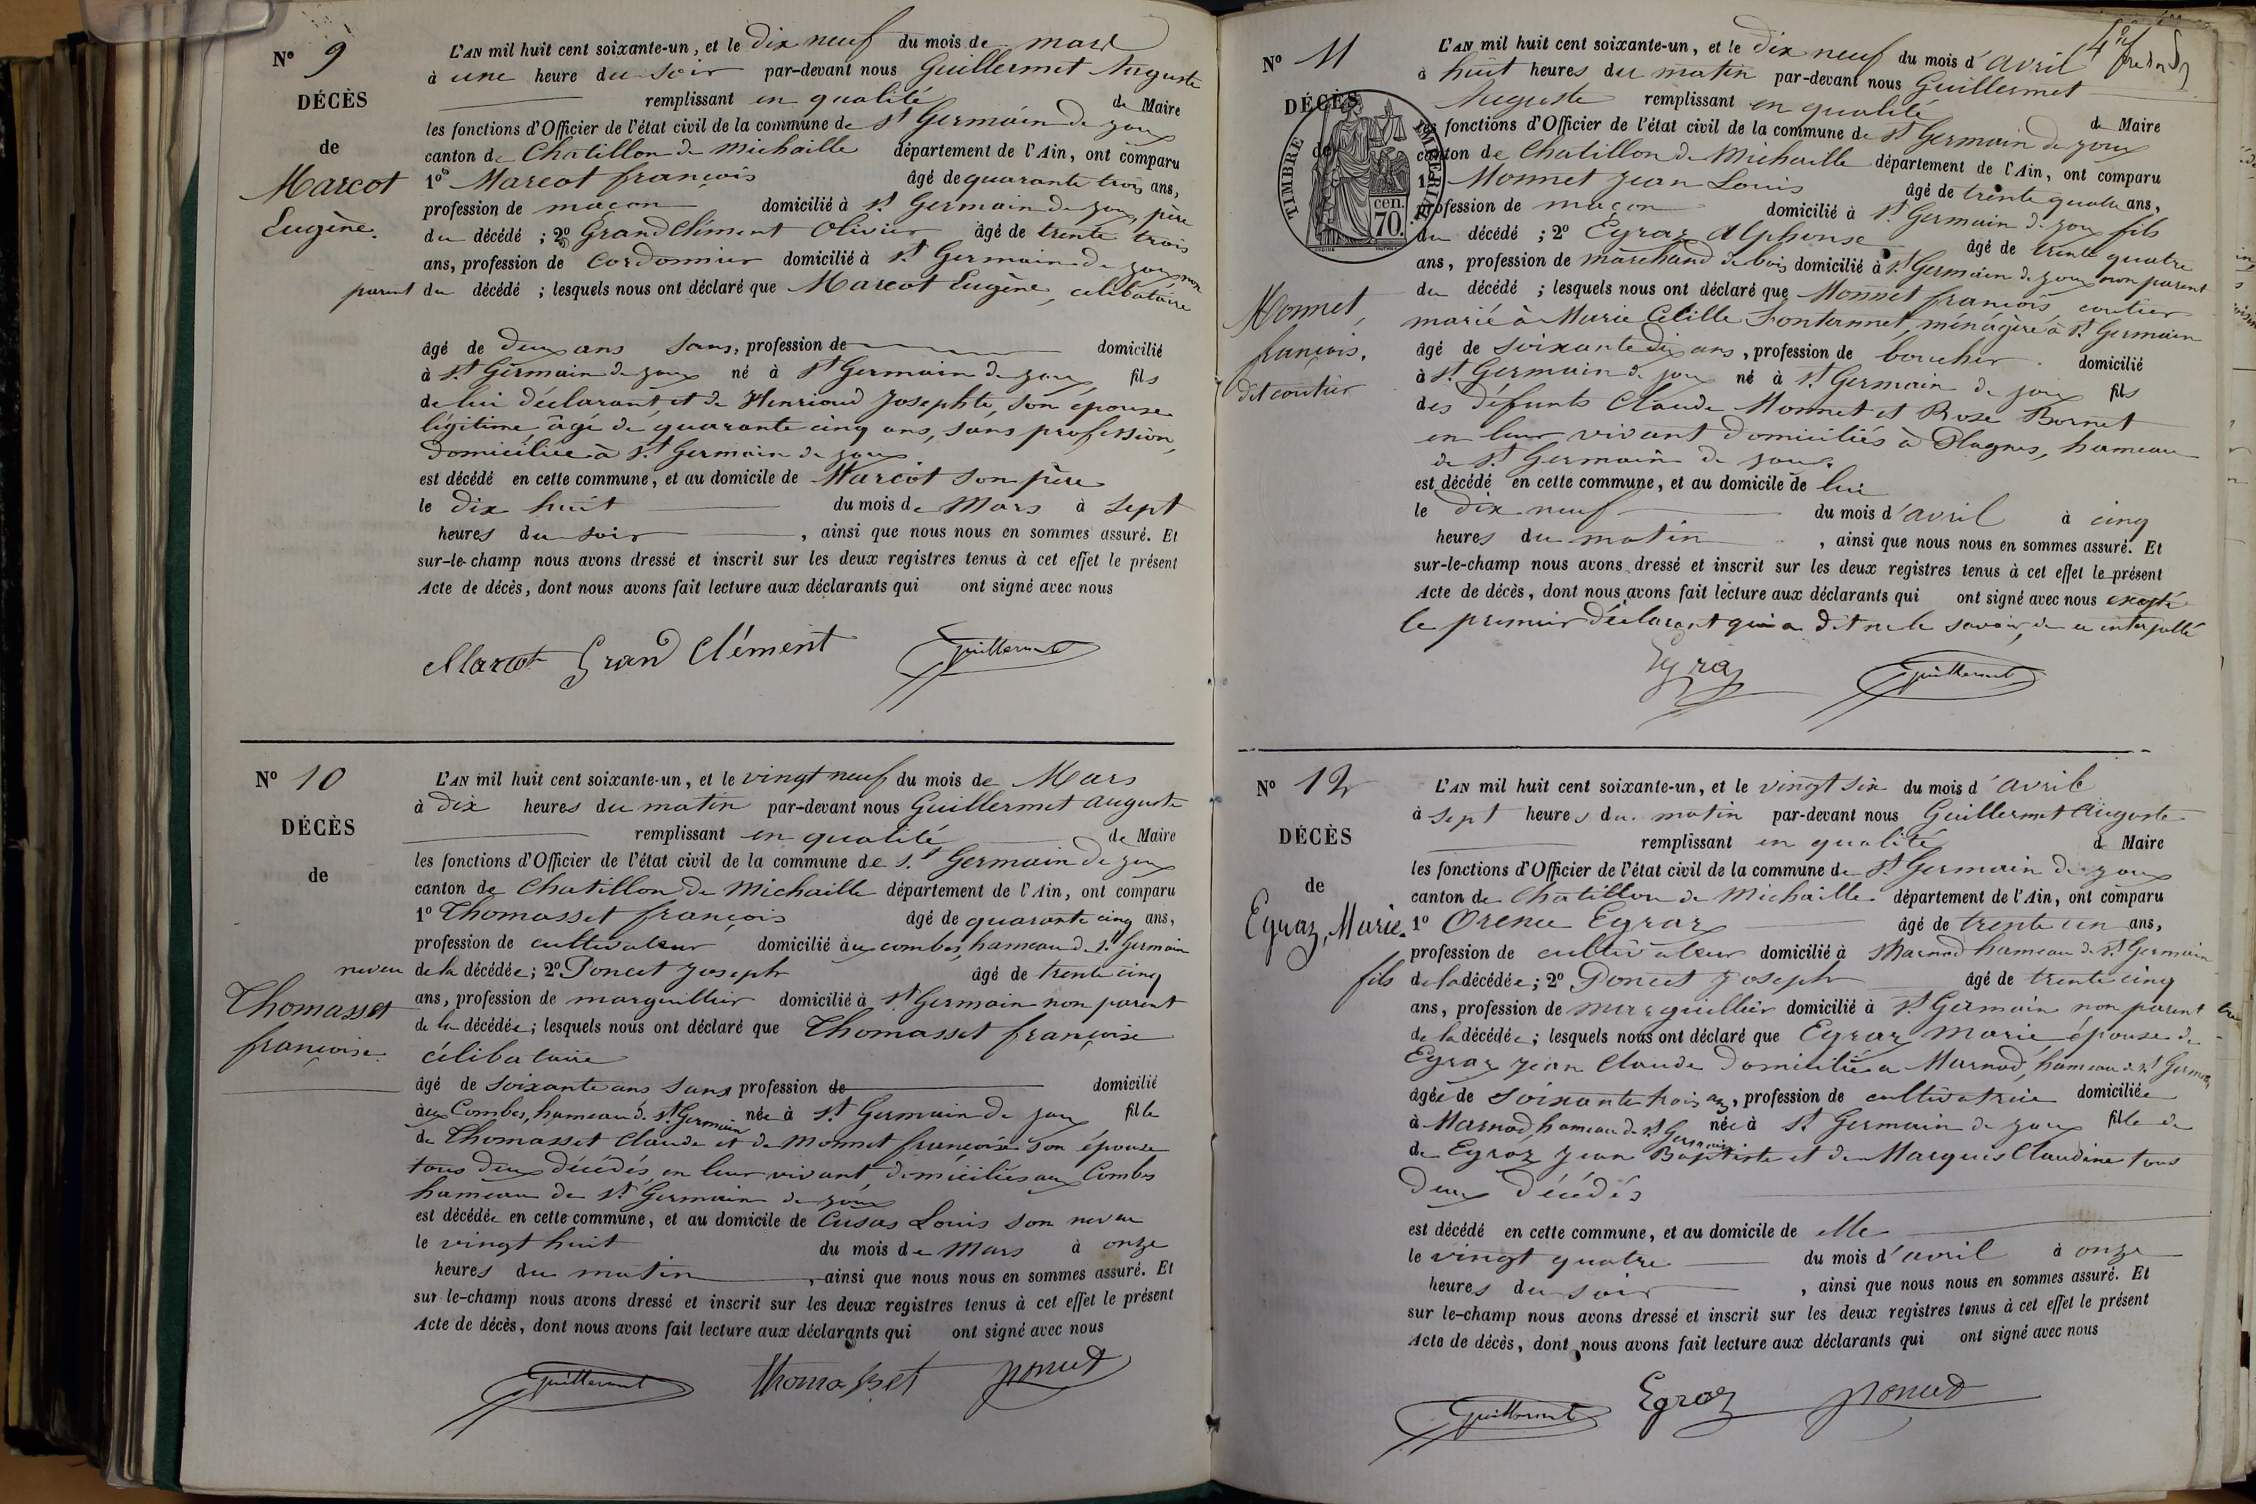 N° 9
DÉCÈS
de
Marcot
Eugène.
L'AN mil huit cent soixante-un, et le dix neuf du mois de mars
à une heure du soir par-devant nous Guillermet Auguste
remplissant en qualité de Maire
les fonctions d'Officier de l'état civil de la commune de St Germain de Joux
canton de Chatillon de Michaille département de l'Ain, ont comparu
1° Marcot françois âgé de quarante trois ans,
profession de maçon domicilié à St Germain de Joux, père
du décédé ; 2° GrandClément Olivier âgé de trente trois
ans, profession de Cordonnier domicilié à St Germain de Joux non
parent du décédé ; lesquels nous ont déclaré que Marcot Eugène, célibataire
âgé de deux ans sans, profession de domicilié
à St Germain de Joux né à St Germain de Joux fils
de lui déclarant, et de Henrioud Josephte, son épouse
légitime âgé de quarante cinq ans, sans profession,
domiciliée à St Germain de Joux
est décédé en cette commune, et au domicile de Marcot son père
le dix huit du mois de Mars à sept
heures du soir, ainsi que nous nous en sommes assuré. Et
sur-le-champ nous avons dressé et inscrit sur les deux registres tenus à cet effet le présent
Acte de décès, dont nous avons fait lecture aux déclarants qui ont signé avec nous
Marcot Grand Clément Guillermet
N° 10
DÉCÈS
de
Thomasset
françoise.
L'AN mil huit cent soixante-un, et le vingt neuf du mois de Mars
à dix heures du matin par-devant nous Guillermet auguste
remplissant en qualité de Maire
les fonctions d'Officier de l'état civil de la commune de St Germain de Joux
canton de Chatillon de Michaille département de l'Ain, ont comparu
1° Thomasset françois âgé de quarante cinq ans,
profession de cultivateur domicilié aux combes, hameau de St Germain
neveu de la décédée; 2° Poncet Joseph âgé de trente cinq
ans, profession de marguillier domicilié à St Germain non parent
de la décédée; lesquels nous ont déclaré que Thomasset françoise
célibataire
âgé de soixante ans sans profession de domicilié
aux Combes, hameau de St Germain née à St Germain de Joux fille
de Thomasset Claude et de Monnet françoise son épouse
tous deux décédés en leur vivant, domiciliés aux Combes
hameau de St Germain de Joux
est décédée en cette commune, et au domicile de Cusas Louis son neveu
le vingt huit du mois de Mars à onze
heures du matin, ainsi que nous nous en sommes assuré. Et
sur le-champ nous avons dressé et inscrit sur les deux registres tenus à cet effet le présent
Acte de décès, dont nous avons fait lecture aux déclarants qui ont signé avec nous
Guillermet Thomasset Poncet
N° 11
DÉCÈS
de
TIMBRE IMPÉRIAL
cen. 70.
Monnet,
françois.
dit coutier
L'AN mil huit cent soixante-un, et le dix neuf du mois d'avril
à huit heures du matin par-devant nous Guillermet
Auguste remplissant en qualité de Maire
les fonctions d'Officier de l'état civil de la commune de St Germain de Joux
canton de Chatillon de Michaille département de l'Ain, ont comparu
1° Monnet Jean Louis âgé de trente quatre ans,
profession de maçon domicilié à St Germain de Joux fils
du décédé ; 2° Eyraz Alphonse âgé de trente quatre
ans, profession de marchand de bois domicilié à St Germain de Joux non parent
du décédé ; lesquels nous ont déclaré que Monnet françois coutier
marié à Marie Cécille Fontannet, ménagère à St Germain
âgé de soixante dix ans, profession de boucher domicilié
à St Germain de Joux né à St Germain de Joux fils
des défunts Claude Monnet et Rose Bornet
en leur vivant domiciliés à Plagnes, hameau
de St Germain de Joux.
est décédé en cette commune, et au domicile de lui
le dix neuf du mois d'avril à cinq
heures du matin, ainsi que nous nous en sommes assuré. Et
sur-le-champ nous avons dressé et inscrit sur les deux registres tenus à cet effet le présent
Acte de décès, dont nous avons fait lecture aux déclarants qui ont signé avec nous excepté
le premier déclarant qui a dit ne le savoir, de ce interpellé
Eyraz Guillermet
N° 12
DÉCÈS
de
Egraz, Marie.
L'AN mil huit cent soixante-un, et le vingt six du mois d'avril
à sept heures du matin par-devant nous Guillermet Auguste
remplissant en qualité de Maire
les fonctions d'Officier de l'état civil de la commune de St Germain de Joux
canton de Chatillon de Michaille département de l'Ain, ont comparu
1° Orence Egraz âgé de trente un ans,
profession de cultivateur domicilié à Marnod hameau de St Germain
fils de la décédée; 2° Poncet Joseph âgé de trente cinq
ans, profession de marguillier domicilié à St Germain non parent
de la décédée; lesquels nous ont déclaré que Egraz Marie épouse de
Egraz Jean Claude domiciliée a Marnod, hameau de St Germain
âgée de soixante trois ans, profession de cultivatrice domiciliée
à Marnod, hameau de St Germain née à St Germain de Joux fille de
de Egraz Jean Baptiste et de Marquis Claudine tous
deux décédés
est décédé en cette commune, et au domicile de elle
le vingt quatre du mois d'avril à onze
heures du soir, ainsi que nous nous en sommes assuré. Et
sur le-champ nous avons dressé et inscrit sur les deux registres tenus à cet effet le présent
Acte de décès, dont nous avons fait lecture aux déclarants qui ont signé avec nous
Guillermet Egraz Poncet